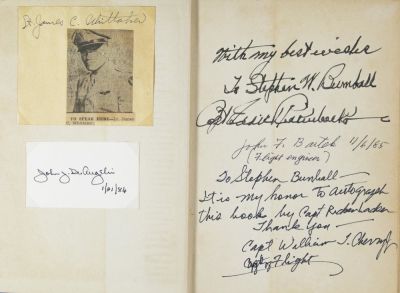 Lt. James C. Whittaker
TO SPEAK HERE—Lt. James
C. Whittaker
John J. DeAngelis
1/21/84
With my best wishes
To Stephen W. Bumball
Capt Eddie Rickenbacker
John F. Bartek 4/6/85
(Flight engineer)
To Stephen Bumball
It is my honor to autograph
this book by Capt Rickenbacker
Thank you—
Capt William T. Cherry Jr
Capt of Flight